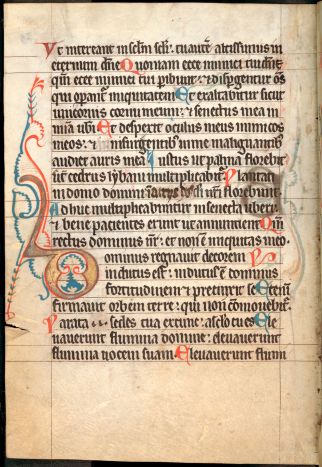 Vt intereant in sclm scli: tu autē altissimus in
eternum dñe Quoniam ecce inimici tui dñe
qm̄ ecce inimici tui peribunt: ⁊ dispgentur om̄s
qui operant̄ iniquitatem Et exaltabitur sicut
unicornis cornu meum: ⁊ senectus mea in
mīa ubi Et despexit oculus meus inimicos
meos: ⁊ in insurgentib; in me malignantib;
audiet auris mea Iustus ut palma florebit
ut cedrus lybani multiplicabit̄ Plantati
in domo domini dei nr̄i florebunt
Adhuc multiplicabuntur in senecta uberi:
⁊ bene pacientes erunt ut annuncient Qm̄
rectus dominus nr̄: et non ē iniquitas in eo
Dominus regnauit decorem
indutus est: indutus ē dominus
fortitudinem ⁊ precinxit se Etenī
firmauit orbem terre: qui non cōmouebit̄
Parata sedes tua ex tunc: a sclo tu es Ele
uauerunt flumina domine: eleuauerunt
flumina uocem suam Eleuauerunt flum